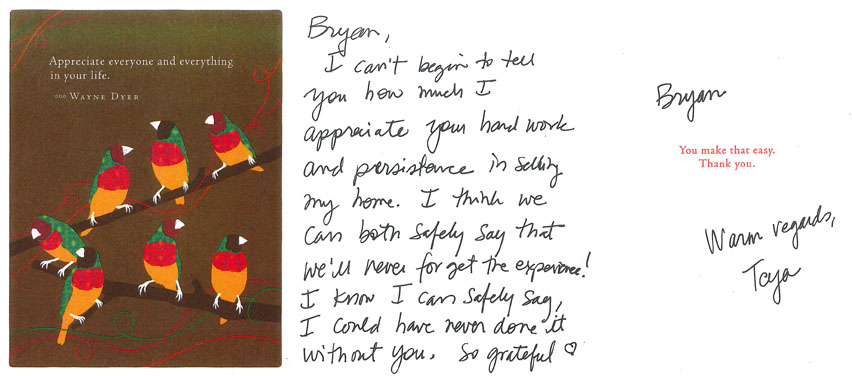 Appreciate everyone and everything
in your life.
°°° WAYNE DYER
Bryan,
I can't begin to tell
you how much I
appreciate your hard work
and persistance in selling
my home. I think we
can both safely say that
we'll never forget the experience!
I know I can safely say,
I could have never done it
without you. So grateful ♡
Bryan
You make that easy.
Thank you.
Warm regards,